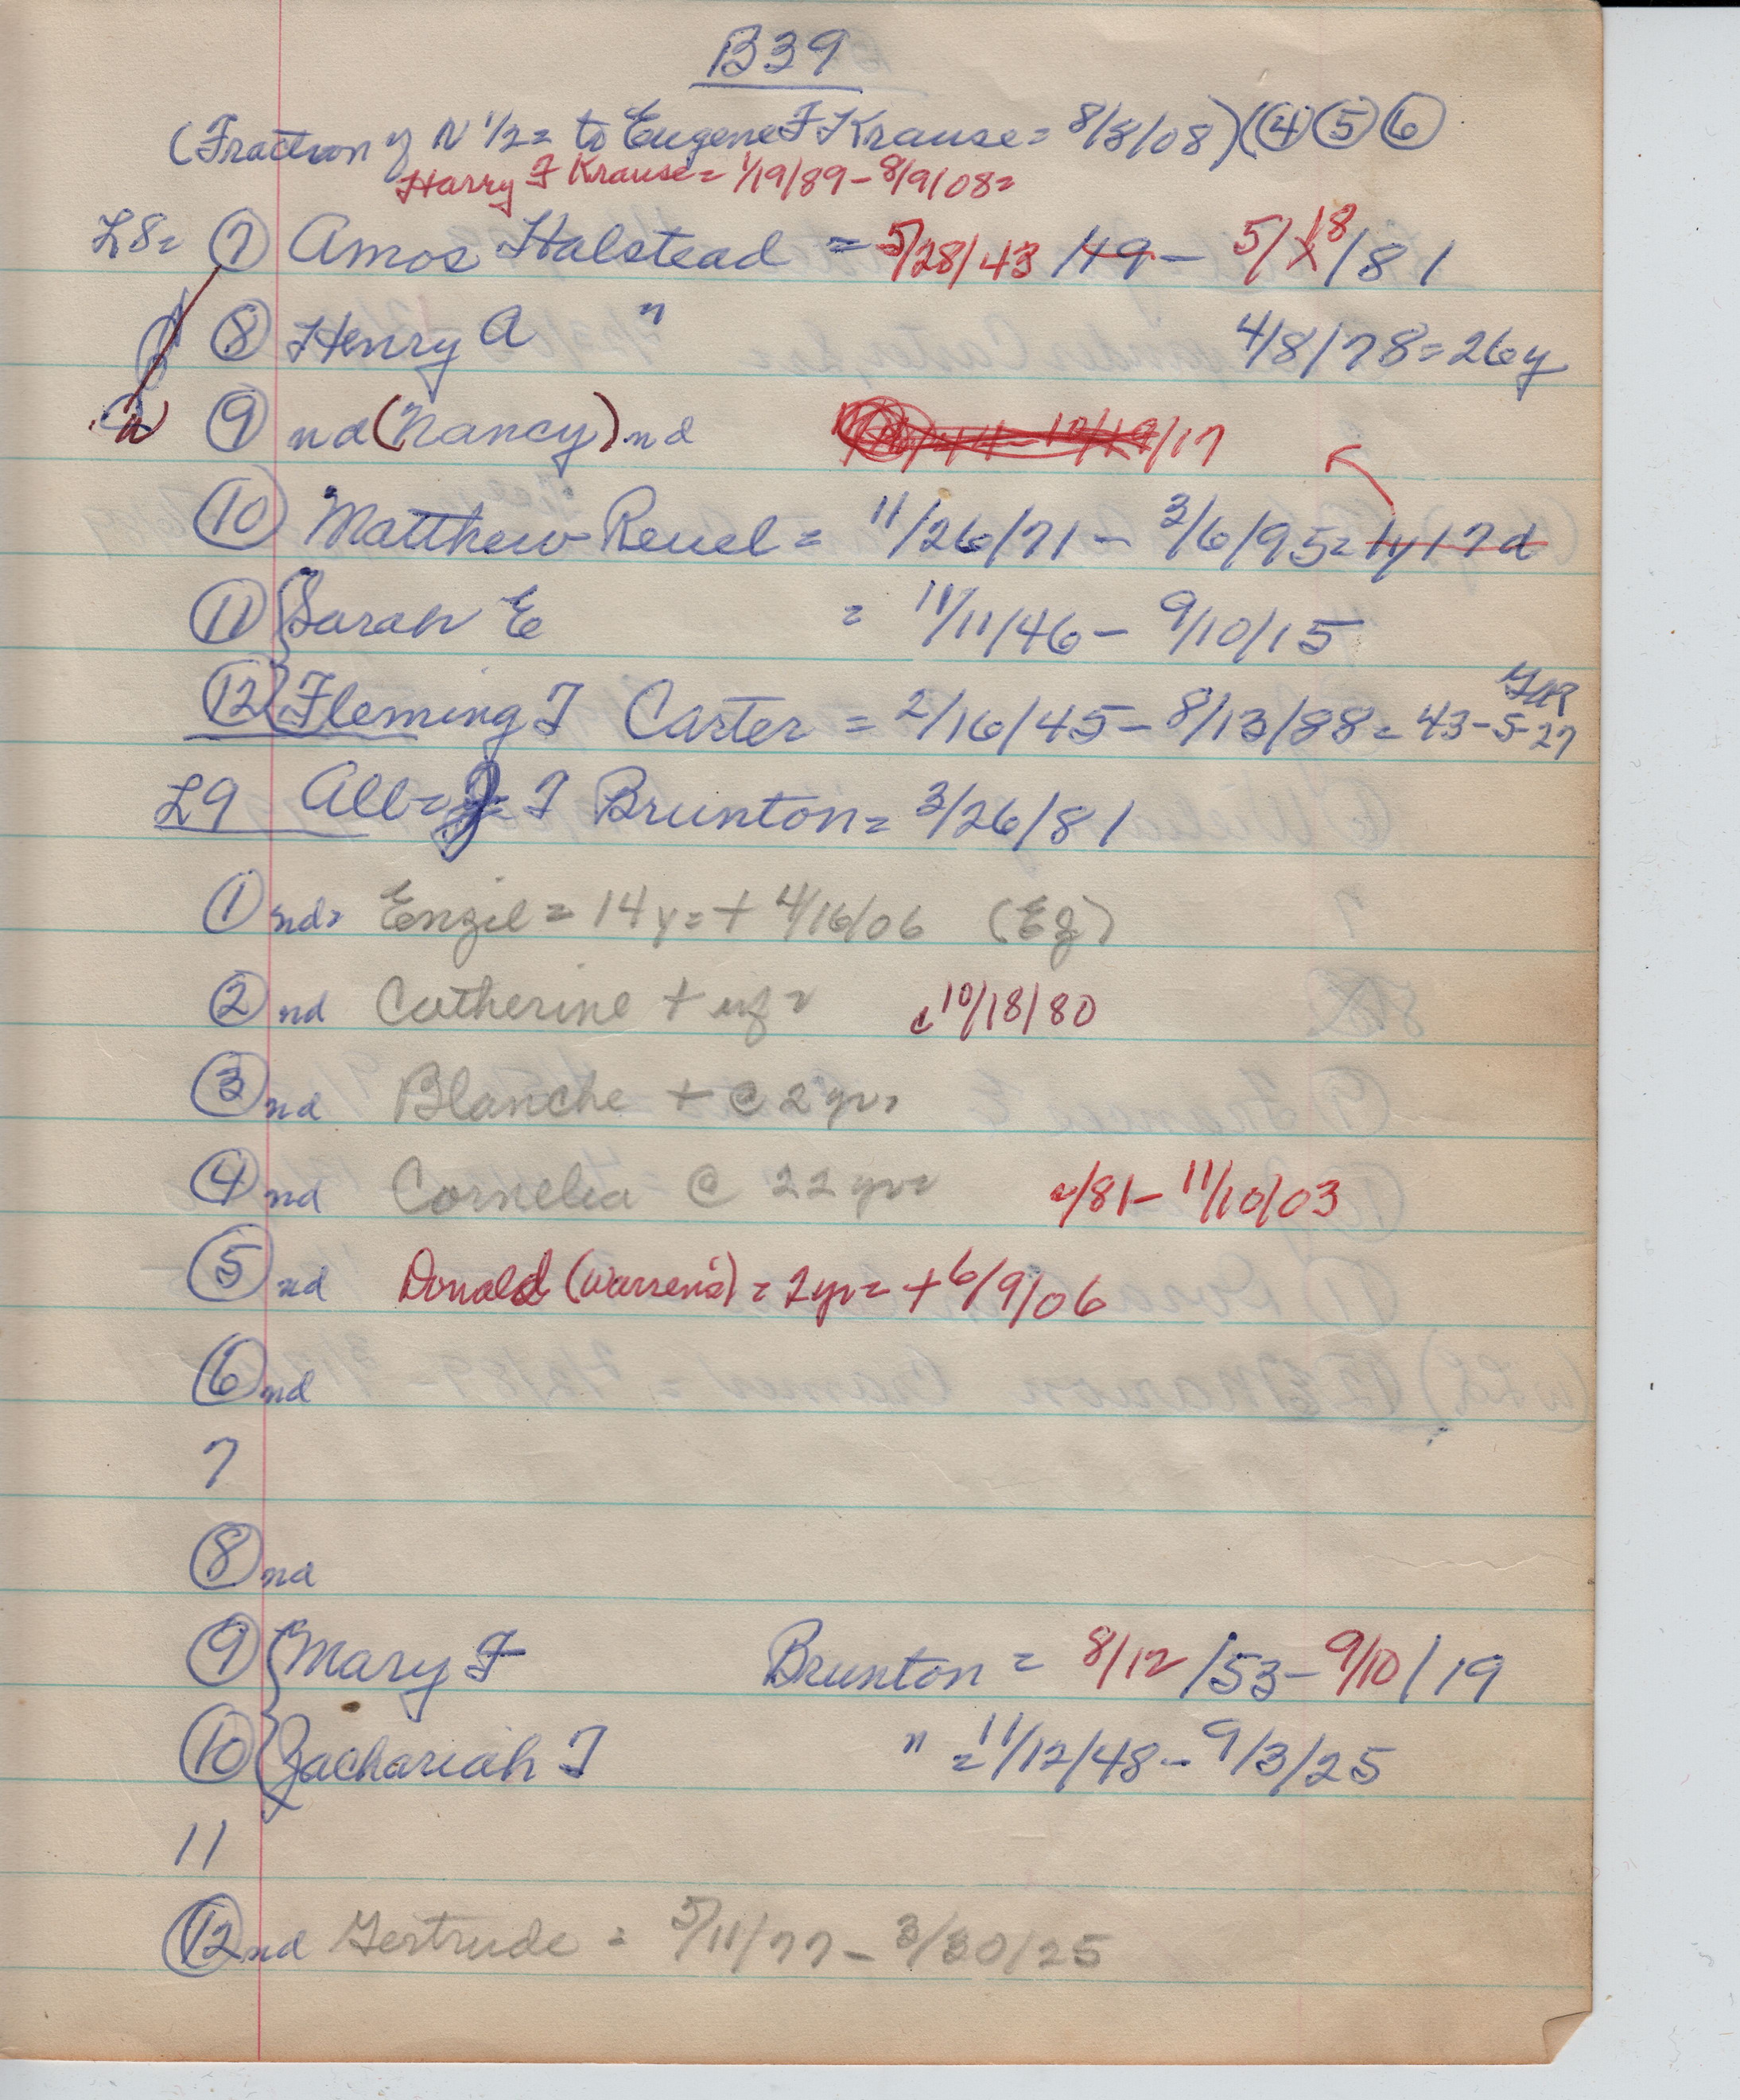 B39
(Fraction of N 1/2 = to Eugene F Krause = 8/8/08) (4 5 6
Harry F Krause = 1/19/89 - 8/9/08 =
L8 = 7 Amos Halstead = 5/28/43 /49 - 5/18/81
8 Henry A " 4/8/78 = 26y
9 nd (Nancy) nd /17
10 Matthew Reuel = 11/26/71 - 3/6/95 = 1y 17d
11 Sarah E = 11/11/46 - 9/10/15
12 Fleming T Carter = 2/16/45 - 8/13/88 = 43-5-27 GAR
L9 All = J T Brunton = 3/26/81
1 nd = Enzil = 14y = + 4/16/06 (Ez)
2 nd Catherine + inf = c 10/18/80
3 nd Blanche + @ 2 yr =
4 nd Cornelia @ 22 yr = /81 - 11/10/03
5 nd Donald (Warren's) = 2 yr = + 6/9/06
6 nd
7
8 nd
9 Mary F Brunton = 8/12/53 - 9/10/19
10 Zachariah T " = 11/12/48 - 9/3/25
11
12 nd Gertrude = 5/11/77 - 3/30/25